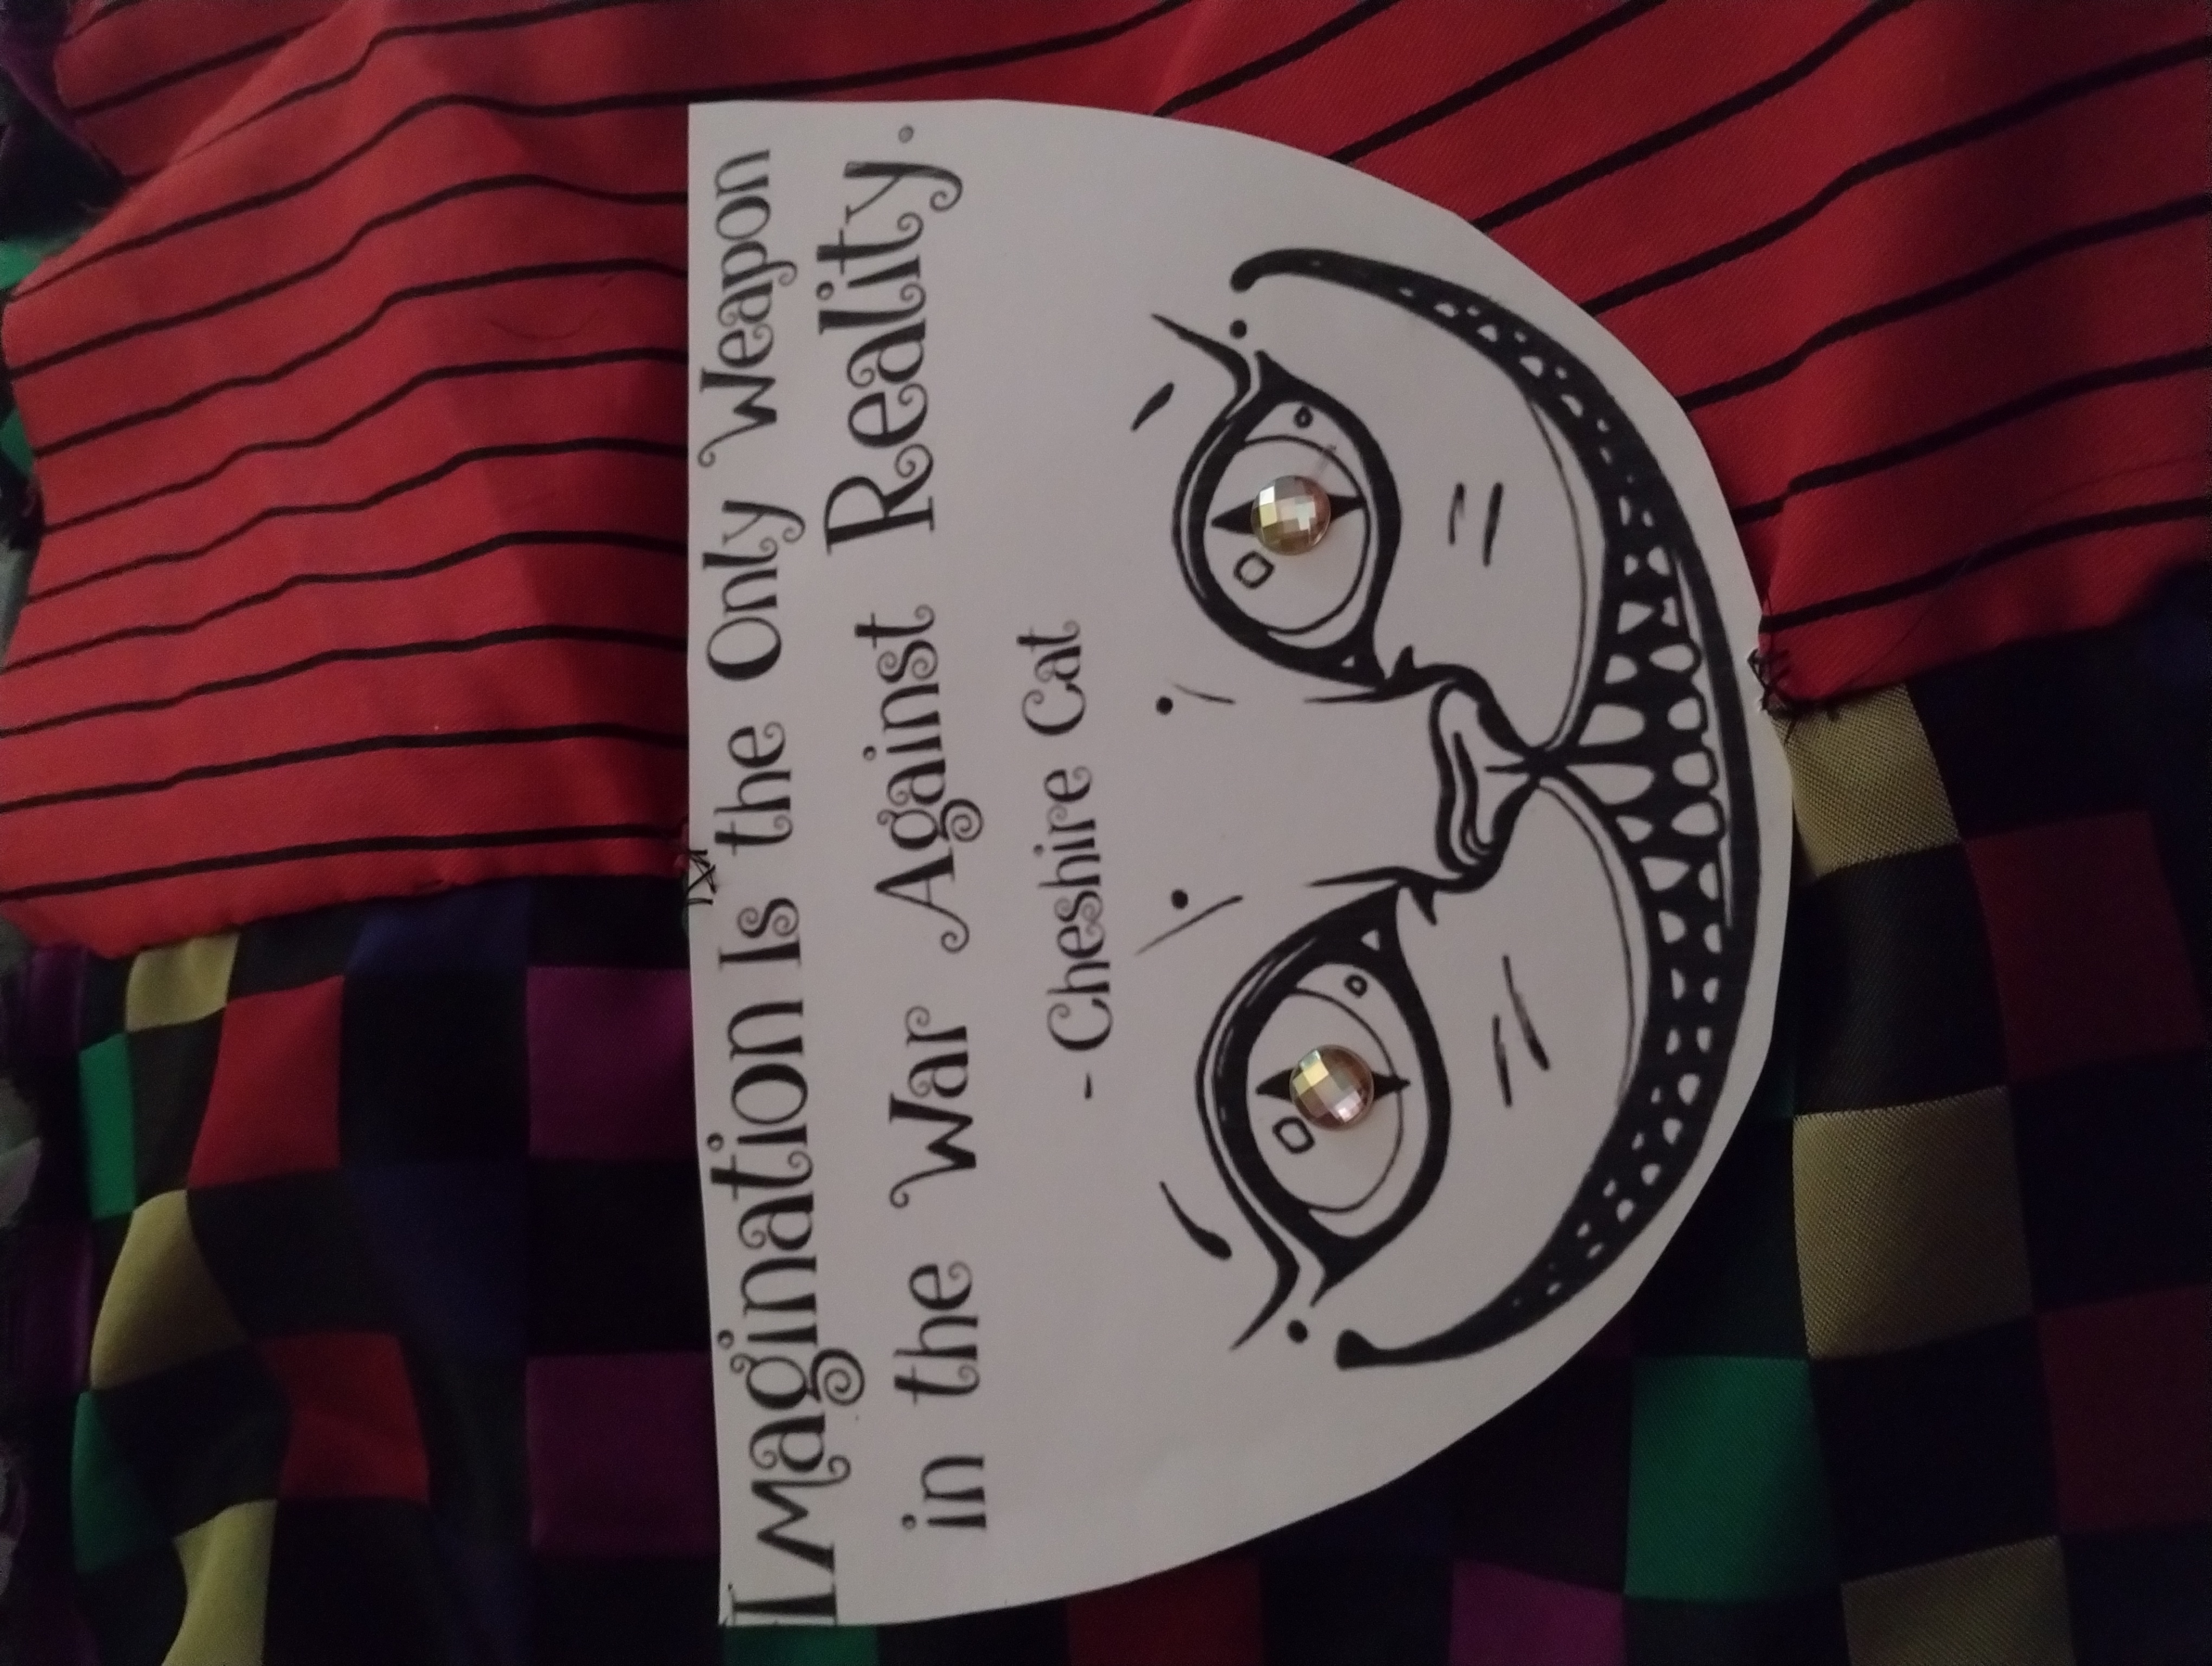 Imagination Is the Only Weapon
in the War Against Reality.
- Cheshire Cat